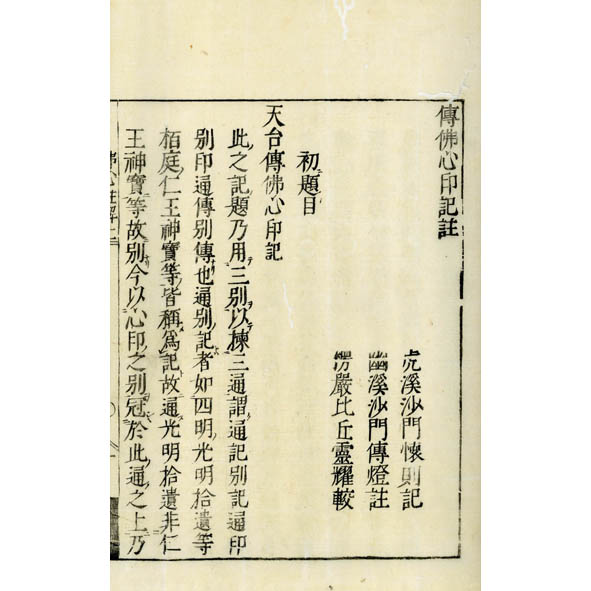 傳佛心印記註
虎溪沙門懷則記
幽溪沙門傳燈註
楞嚴比丘靈耀較
初題目
天台傳佛心印記
此之記題乃用三別以揀三通謂通記別記通印
別印通傳別傳也通別記者如四明光明拾遺等
栢庭仁王神寶等皆稱爲記故通光明拾遺非仁
王神寶等故別今以心印之別冠於此通之上乃